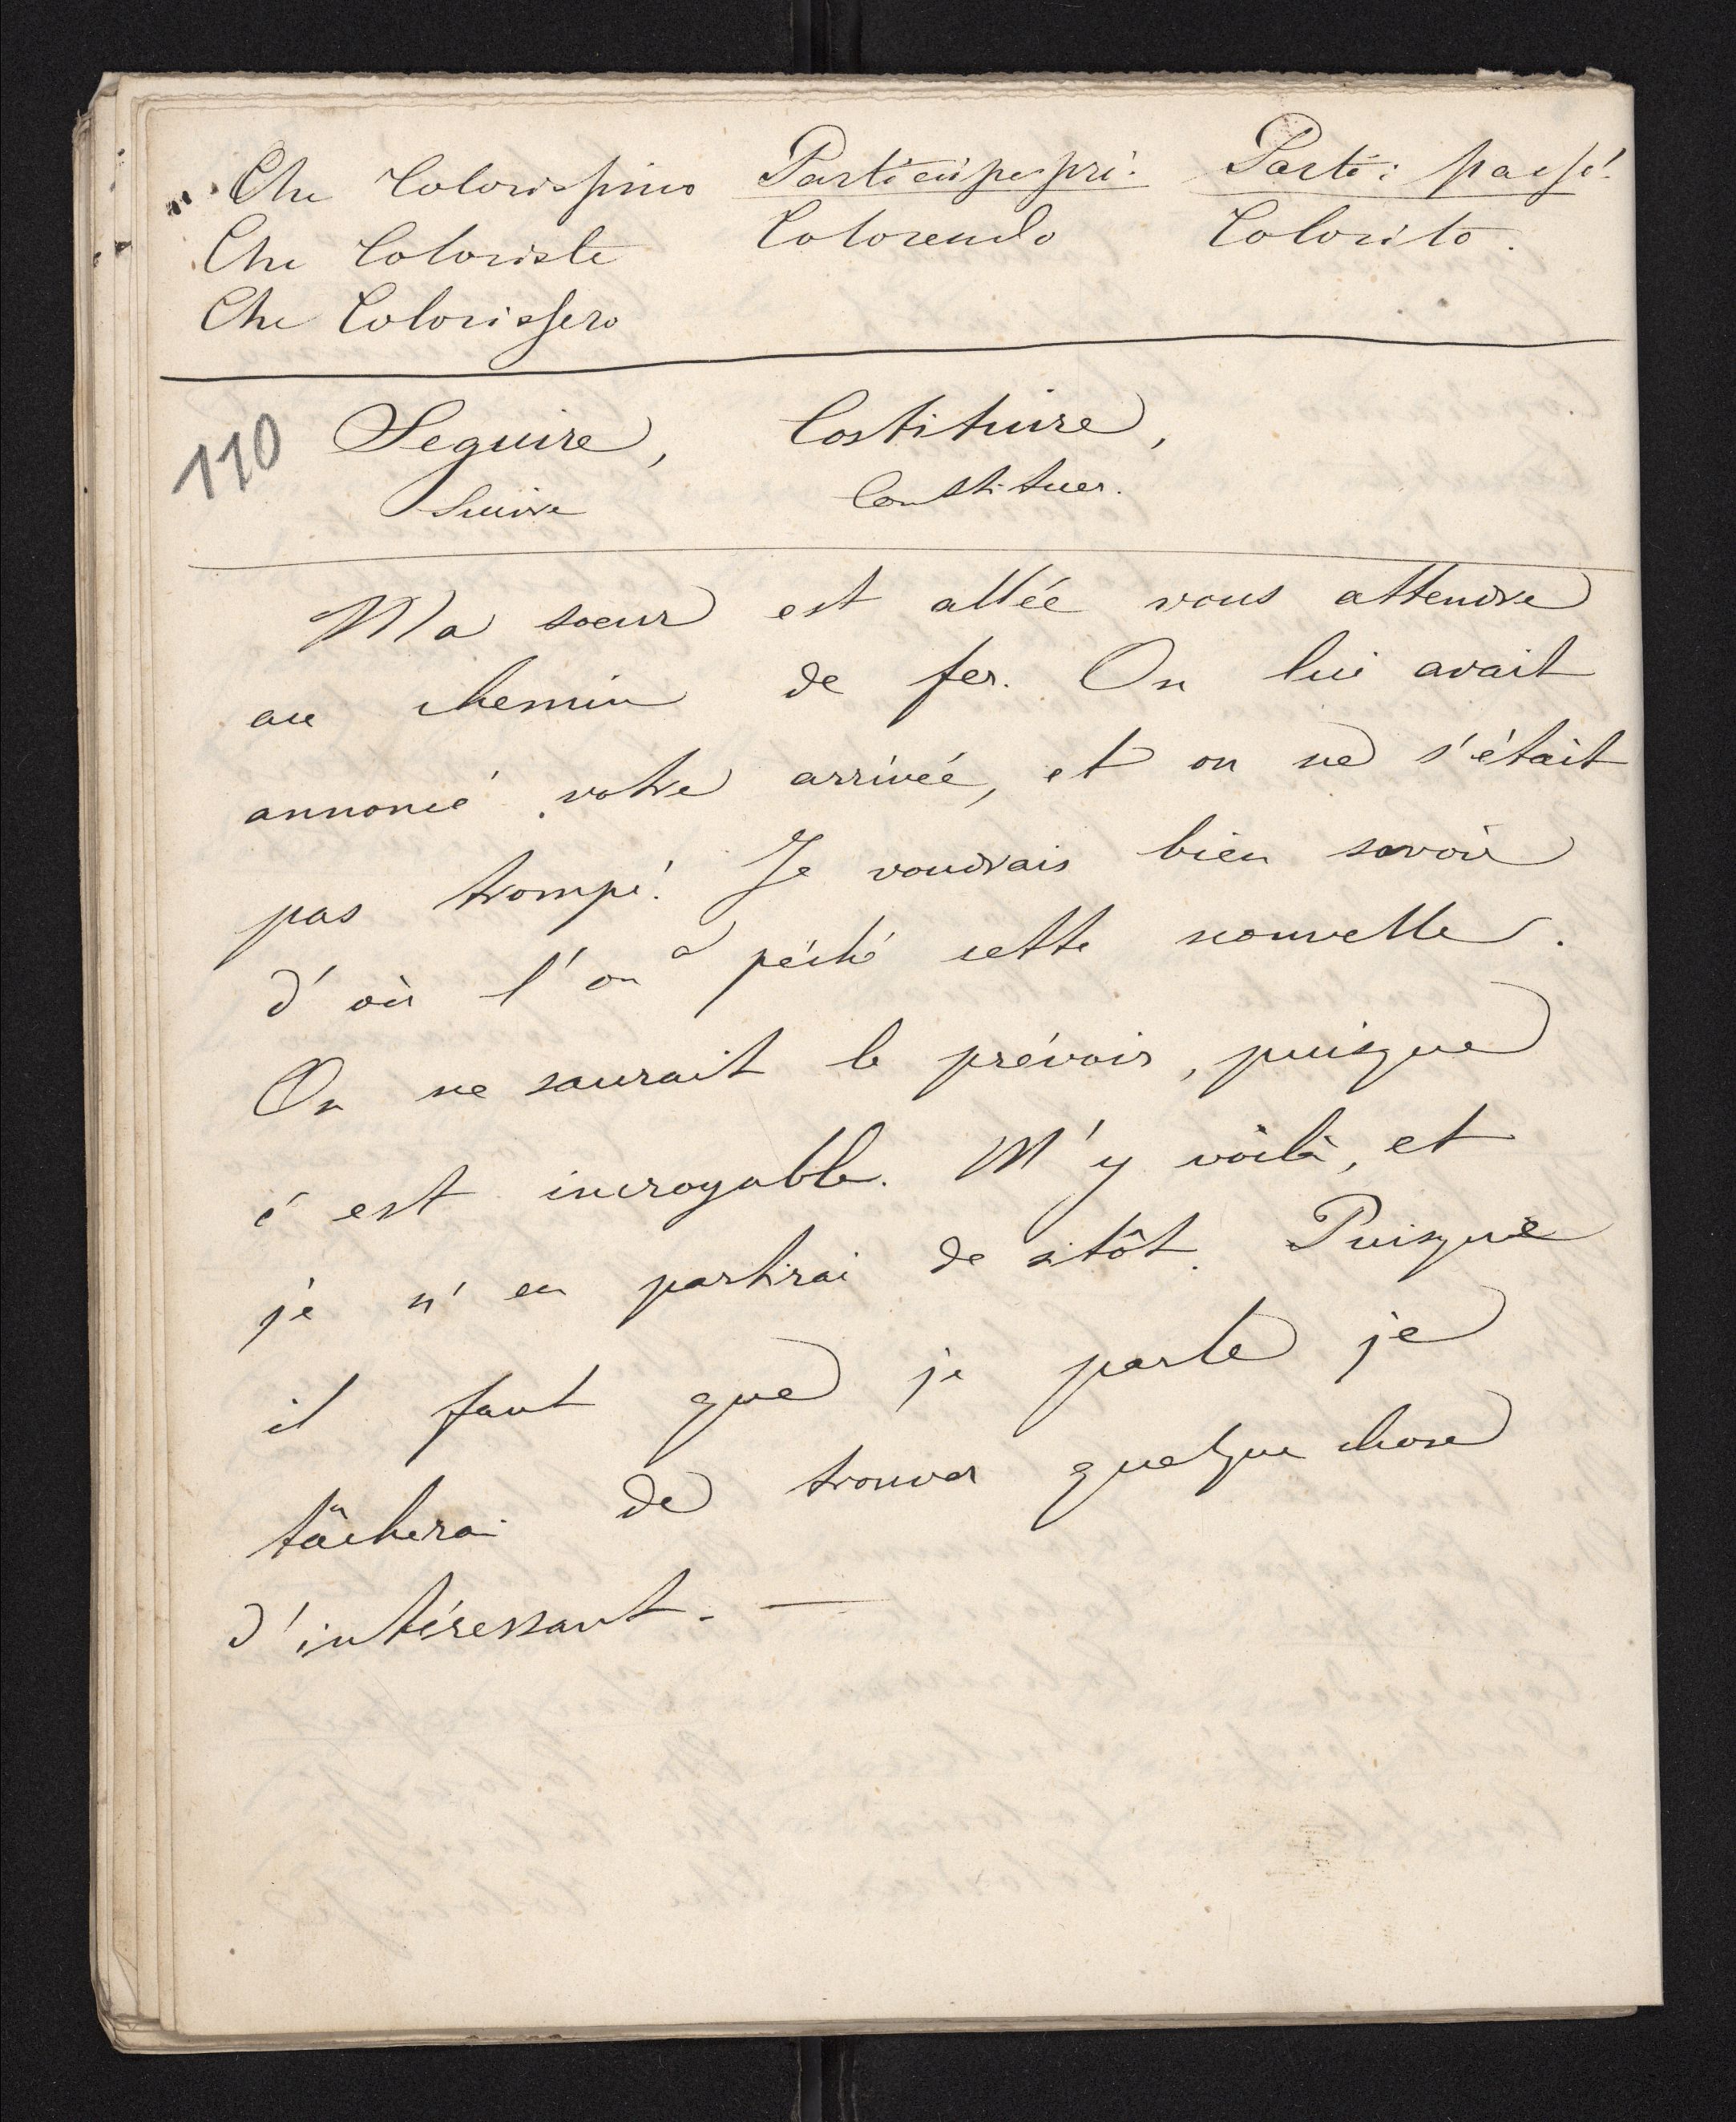 Che Colorissimo Participe pré. Parti: passé.
Che Coloriste Colorendo Colorito.
Che Colorissero
110 Seguire, Costituire,
Suivre Constituer.
Ma soeur est allée vous attendre
au chemin de fer. On lui avait
annoncé votre arrivée, et on ne s'était
pas trompé! Je voudrais bien savoir
d'où l'on a pêché cette nouvelle.
On ne saurait le prévoir, puisque
c'est incroyable. M'y voilà, et
je n'en partirai de sitôt. Puisque
il faut que je parte je
tâcherai de trouver quelque chose
d'intéressant. —